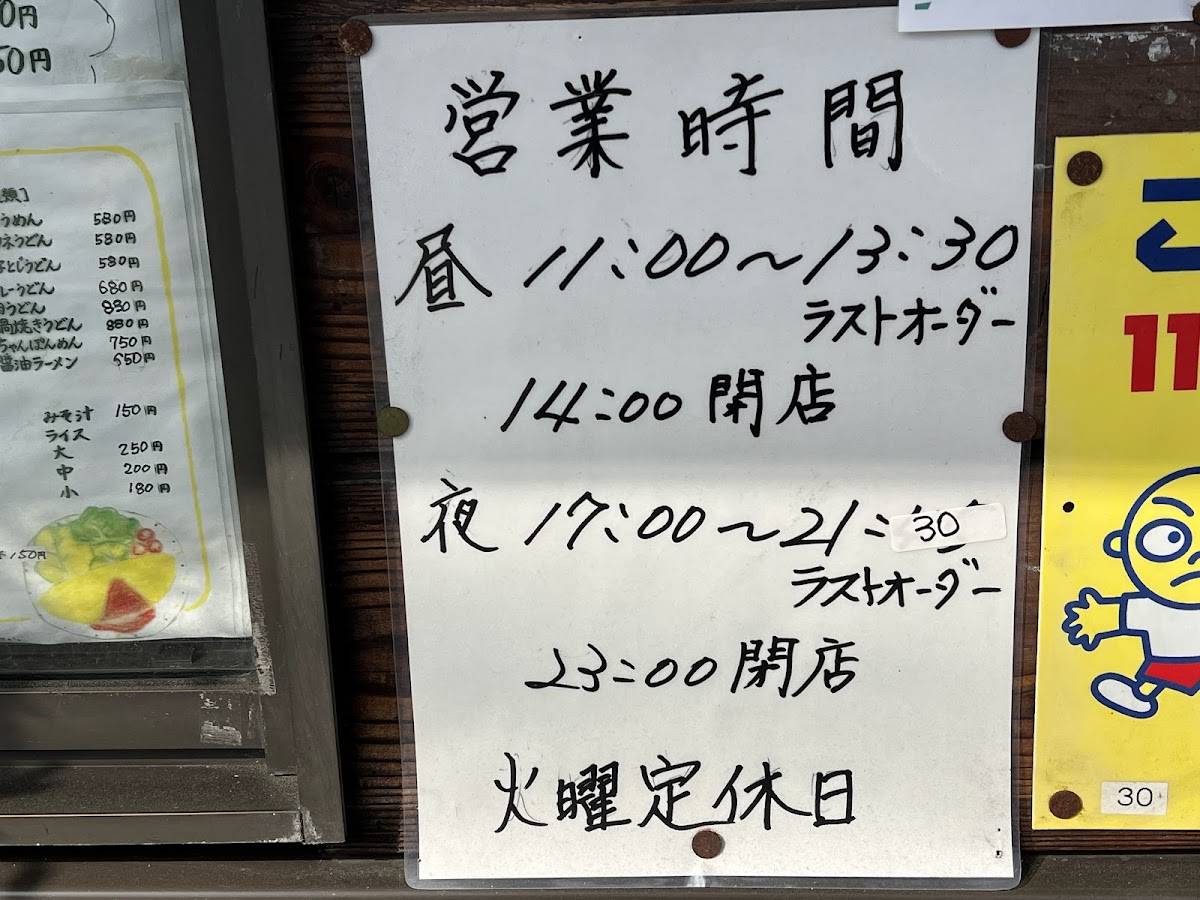 0円
50円
類]
うめん 580円
うどん 580円
とじうどん 580円
レーうどん 680円
うどん 830円
鍋焼きうどん 880円
ちゃんぽんめん 750円
醤油ラーメン 650円
みそ汁 150円
ライス
大 250円
中 200円
小 180円
150円
営業時間
昼 11:00〜13:30
ラストオーダー
14:00 閉店
夜 17:00〜21:30
ラストオーダー
23:00 閉店
火曜定休日
こ
11
30